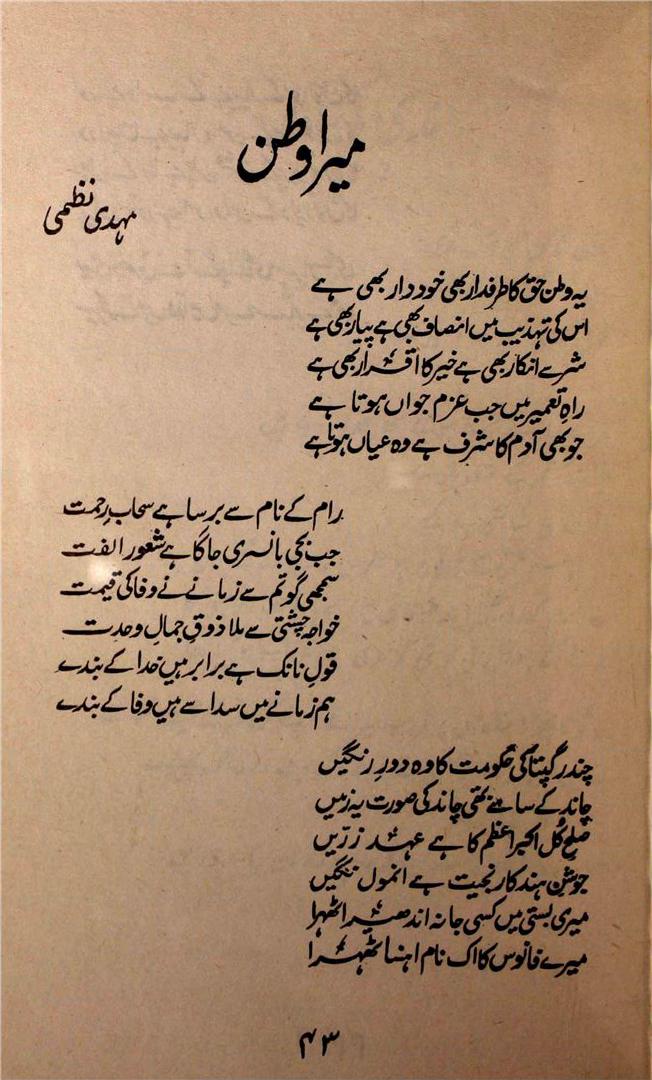 میرا وطن
مہدی نظمی
یہ وطن حق کا طرفدار بھی خوددار بھی ہے
اس کی تہذیب میں انصاف بھی ہے پیار بھی ہے
شر سے انکار بھی ہے خیر کا اقرار بھی ہے
راہِ تعمیر میں جب عزم جواں ہوتا ہے
جو بھی آدم کا شرف ہے وہ عیاں ہوتا ہے
رام کے نام سے برسا ہے سحابِ رحمت
جب بجی بانسری جاگا ہے شعور الفت
سمجھی گوتم سے زمانے نے وفا کی قیمت
خواجہ چشتی سے ملا ذوقِ جمالِ وحدت
قولِ نانک ہے برابر ہیں خدا کے بندے
ہم زمانے میں سدا سے ہیں وفا کے بندے
چندر گپتا کی حکومت کا وہ دورِ رنگیں
چاند کے سامنے تھی چاند کی صورت یہ زمیں
صلحِ کُل اکبر اعظم کا ہے عہد زرّیں
جوشِ ہند کا رنجیت ہے انمول نگیں
میری بستی میں کسی جا نہ اندھیرا ٹھہرا
میرے فانوس کا اک نام اہنسا ٹھہرا
۴۳